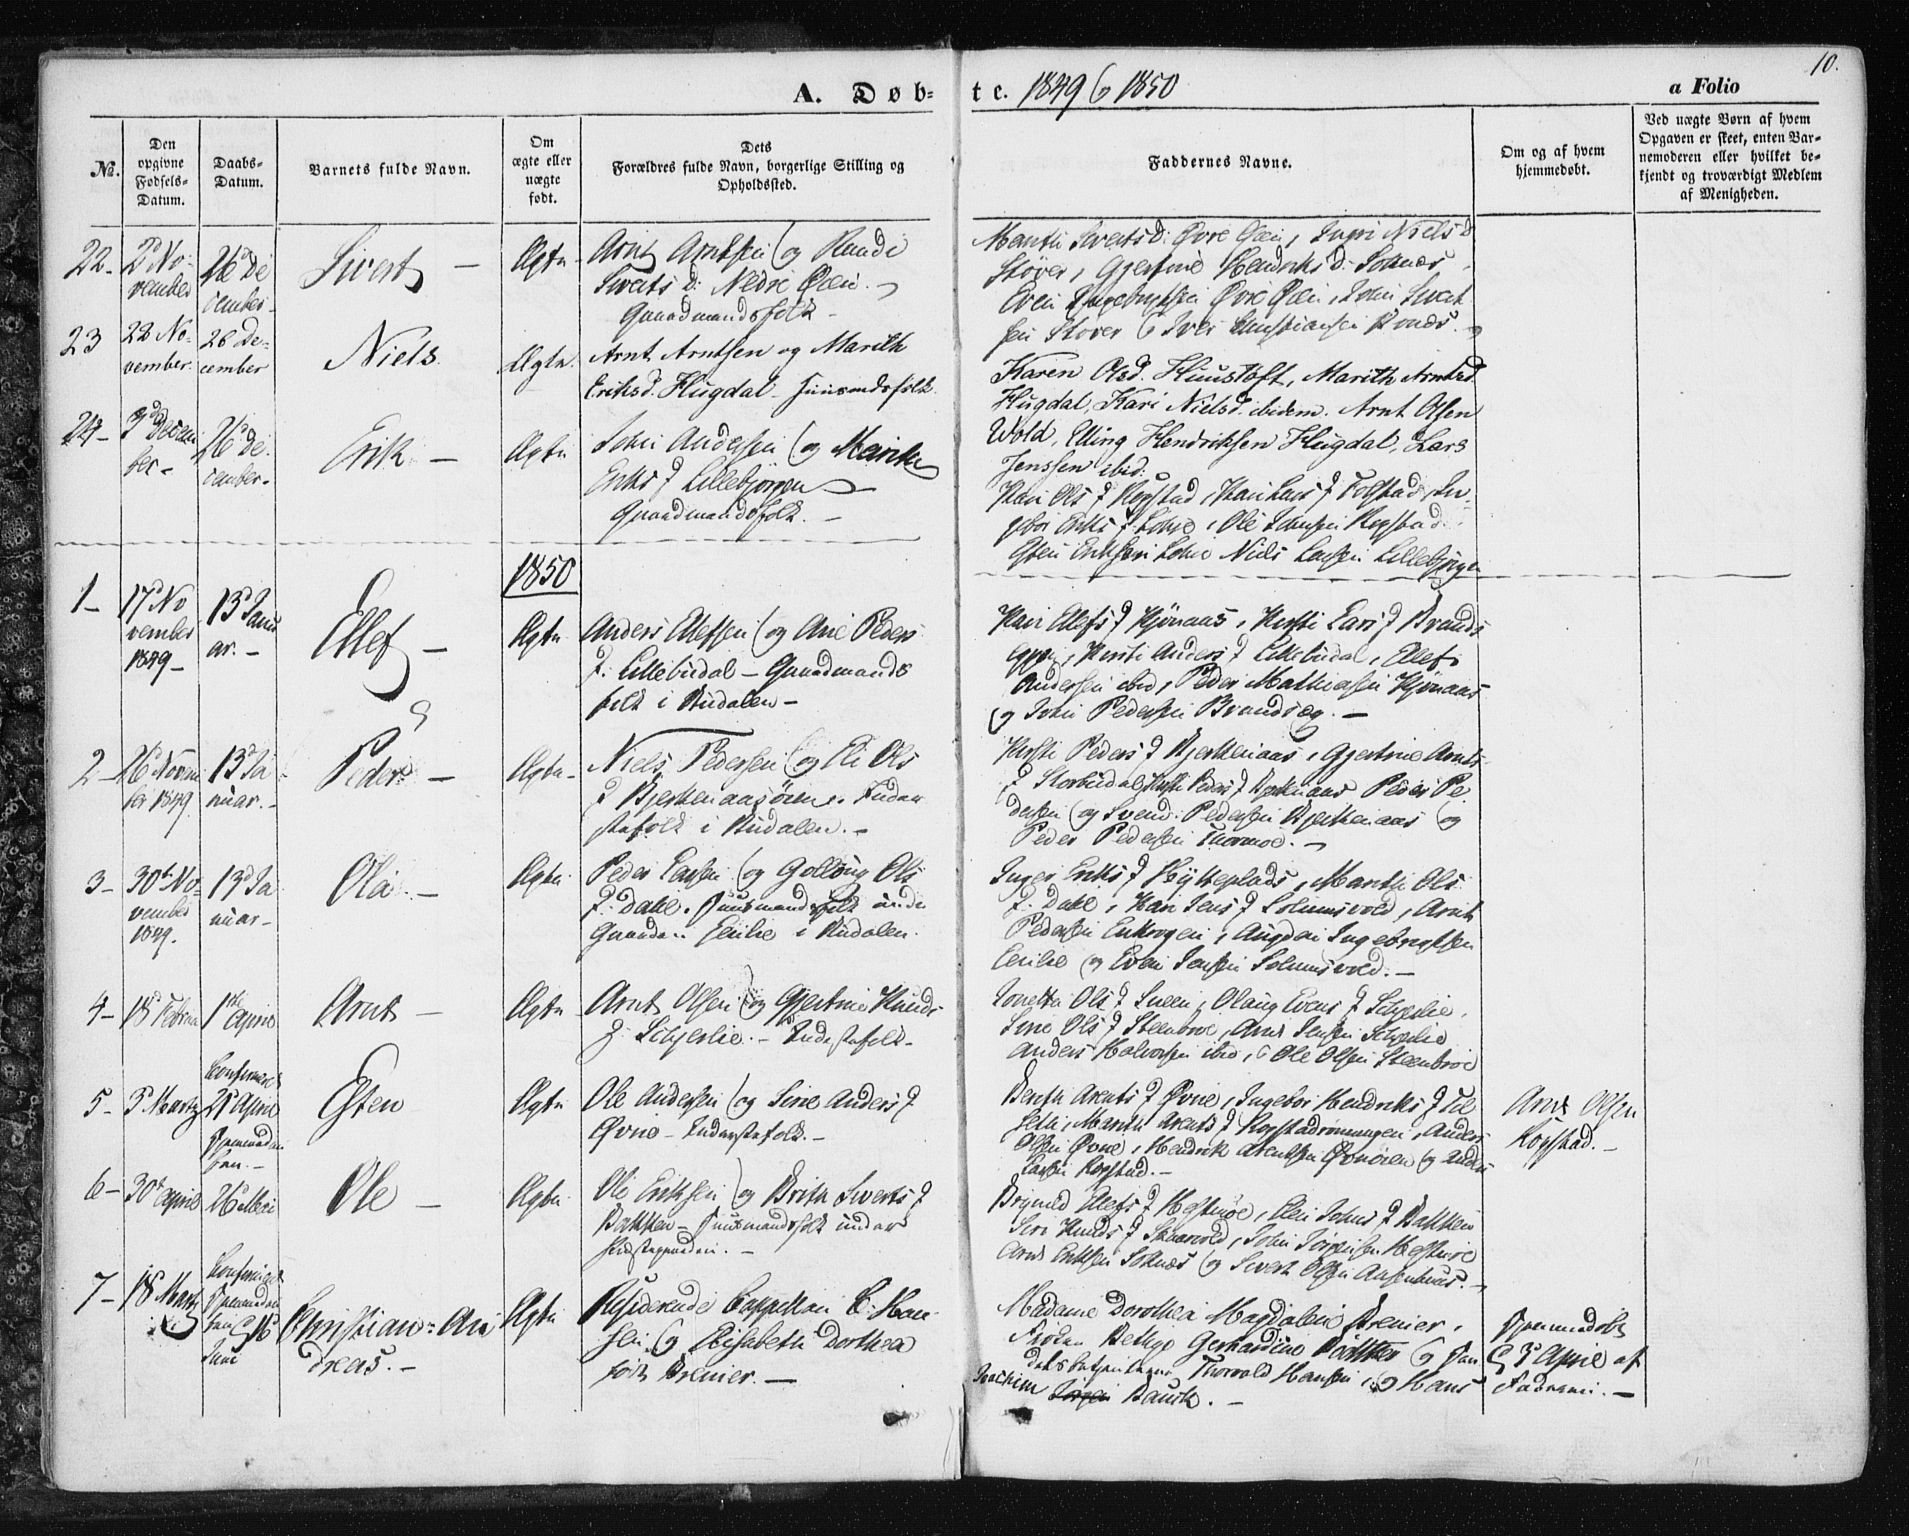 10.
A. Døb-
te. 1849 & 1850
a Folio
No.
Den opgivne Fødsels-Datum.
Daabs-Datum.
Barnets fulde Navn.
Om ægte eller nægte født.
Dets Forældres fulde Navn, borgerlige Stilling og Opholdssted.
Faddernes Navne.
Om og af hvem hjemmedøbt.
Ved nægte Børn af hvem
Opgaven er skeet, enten Bar-
nemoderen eller hvilket be-
kjendt og troværdigt Medlem
af Menigheden.
22- 2d No-
vember
26d De
cember-
Sivert -
Ægte-
Arnt Arntsen og Randi
Siverts d: Nedre Øien.
Gaardmandsfolk -
Marith Siverts d: Øvre Øien, Ingri Niels d
Støver, Gjertine Hendriks d: Soknæs
Even Ingebrigtsen Øvre Øien, John Sivert
sen Støver & Iver Christiansen
23
22 No-
vember.
26 De-
cember
Niels.
Ægte.
Arnt Arntsen og Marith
Eriksd. Hugdal - Huusmandsfolk
Karen Olsd. Huustoft, Marith Arntsd.
Hugdal, Kari Nielsd. ibidem. Arnt Olsen
Wold, Elling Hendriksen Hugdal, Lars
Jenssen ibid.
24-
3d Decem
ber-
26d De
cember-
Erik -
Ægte
John Andersen og Marith
Eriks d Lillebjørgen
Gaardmandsfolk. -
Kari Ols d Kopstad, Kari Lars d Folstad, In-
gebor Eriks d Lohre, Ole Johnsen Kopstad
Esten Eriksen Lohre Niels Larsen Lillebjørgen
1850
1-
17d No
vember
1849-
13d Janu
ar.-
Ellef -
Ægte
Anders Ellefsen og Ane Peders
d: Lillebudal - Gaardmands
folk i Budalen -
Kari Ellefs d Hjønaas, Kirsti Lars d Brands
egg, Kirsti Anders d Lillebudal, Ellef
Andersen ibid, Peder Mathiesen Hjønaas
og John Pedersen Brandsæg. -
2-
26d Novem
ber 1849.
13d Ja
nuar.-
Peder -
Ægte-
Niels Pedersen og Eli Ols
d Bjerkenaasøien. Inder
stefolk i Budalen. -
Kirsti Peders d Bjerkenaas, Gjertine Arnts
d Storbudal Kirsti Peders d Bjerkenaas Peder Pe
dersen og Svend Pedersen Bjerkenaas og
Peder Pedersen Thormoe. -
3-
30t No-
vember
1849.
13d Ja
nuar-
Ola -
Ægte
Peder Larsen og Gollaug Ols
d: Dahl. Huusmandsfolk under
Gaarden Enlie i Budalen.
Inger Eriks d Hytteplads, Marith Ols
d: Dahl, Kari Jens d Solumsvold, Arnt
Pedersen Enkrogen, Augden Ingebrigtsen
Enlie og Even Jensen Solumsvold. -
4-
18d Februar
1ste April
Arnt -
Ægte
Arnt Olsen og Gjertine Knuds
d: Schjerlie. - Inderstefolk-
Jonetta Ols d Sneen, Olaug Evens d Schjerlie,
Sirie Ols d Steenbroe, Arnt Jensen Schjerlie
Anders Halvorsen ibid, & Ole Olsen Steenbroe
5-
3d Martz
Confirmeret
21d April
Hjemmedaa
ben.-
Esten
Ægte
Ole Andersen og Sirie Anders d
Øvne - Inderstefolk. -
Berith Arents d Øvne, Ingebor Hendriks d
Marith Arents d Kopstadrønningen, Anders
Olsen Øvne, Hendrik Arentsen Øvnøien og Anders
Larsen Kopstad. -
Arnt Olsen
Kopstad. -
6-
30t April
26d Mai
Ole -
Ægte
Ole Eriksen og Brith Siverts d
Bakken - Huusmandsfolk under
Præstegaarden. -
Brynild Ellefs d Hestmoe, Elen Johns d Bakken
Siri Knuds d, John Jørgensen Hestmoe
Arnt Eriksen Soknæs og Sivert Olsen
7-
18d Martz
Confirmeret
Hjemmedaa
ben 16d
Juni
Christian-An
dreas. -
Ægte
Residerende Cappellan C: Han
sen og Elisabeth Dorthea
født Brenier. -
Madame Dorothea Magdalene Brenier,
Frøken Bethye Gerhardine og
Thorvald Hansen, og Hans
Joachim Jørgen Bauck. -
Hjemmedøbt
3d April af
Faderen. -